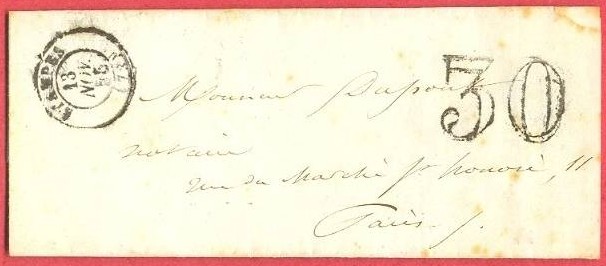 ETAMPES
13
NOV.
30
Monsieur Dupont
notaire
rue du Marché St honoré, 11
Paris